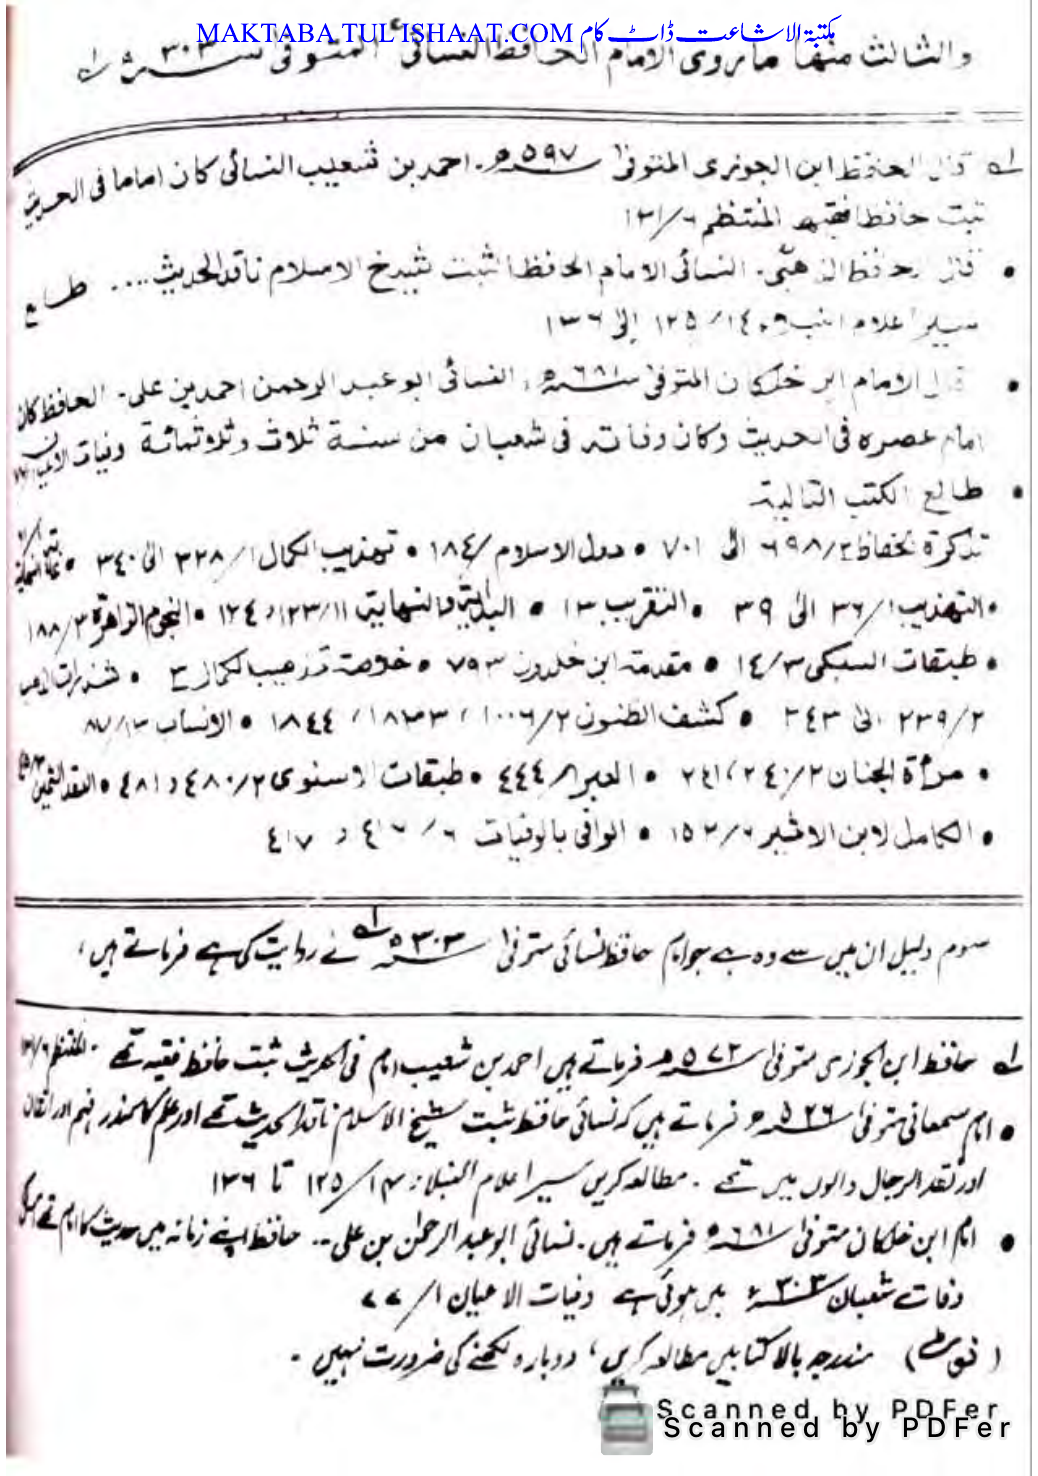 MAKTABA.TUL'ISHAAT.COM مکتبۃ الاشاعت ڈاٹ کام
والثالث منھا ماروی الامام الحافظ النسائی المتوفی سنہ ۳۰۳ھ لہ
لہ قال الحافظ ابن الجوزی المتوفی سنہ ۵۹۷ھ۔ احمد بن شعیب النسائی کان اماما فی الحدیث
ثبت حافظا فقیھا المنتظم ۱۳۱/۶
• قال الحافظ الذھبی۔ النسائی الامام الحافظ الثبت شیخ الاسلام ناقد الحدیث .... طالع
سیر اعلام النبلاء ۱۲۵/۱٤ الی ۱۳۶
• قال الامام ابن خلکان المتوفی سنہ ۶۸۱ھ، النسائی ابو عبد الرحمن احمد بن علی۔ الحافظ کان
امام عصرہ فی الحدیث وکان وفاتہ فی شعبان من سنة ثلاث وثلاثمائة وفیات الاعیان
• طالع الکتب التالیة
تذکرة الحفاظ ۶۹۸/۲ الی ۷۰۱ • دول الاسلام /۱۸٤ • تهذیب الکمال ۳۲۸/۱ الی ۳٤۰ •
• التهذیب ۳۶/۱ الی ۳۹ • التقریب ۱۳ • البدایة والنهایة ۱۲۳/۱۱، ۱۲٤ • النجوم الزاهرة ۱۸۸/۳
• طبقات السبکی ۱٤/۳ • مقدمة ابن خلدون ۷۹۳ • خلاصة تذهیب الکمال • شذرات الذهب
۲۳۹/۲ الی ۲٤۳ • کشف الظنون ۱۰۰۶/۲، ۱۸۳۳، ۱۸٤٤ • الانساب
• مرأة الجنان ۲٤۰/۲، ۲٤۱ • العبر /٤٤٤ • طبقات الاسنوی ٤۸۰/۲ و ٤۸۱ • العقد الثمین
• الکامل لابن الاثیر ۱۵۲/۶ • الوافی بالوفیات ۶/ ٤۱۶ و ٤۱۷
سوم دلیل ان میں سے وہ ہے جو امام حافظ نسائی متوفی سنہ ۳۰۳ھ لہ نے روایت کی ہے فرماتے ہیں،
لہ حافظ ابن الجوزی متوفی سنہ ۵۷۲ھ فرماتے ہیں احمد بن شعیب امام فی الحدیث ثبت حافظ فقیہ تھے۔ المنتظم
• امام سمعانی متوفی سنہ ۵۲۶ھ فرماتے ہیں کہ نسائی حافظ ثبت شیخ الاسلام ناقد الحدیث تھے اور علم کا سمندر فہم اور اتقان
اور نقد الرجال والوں میں تھے۔ مطالعہ کریں سیر اعلام النبلاء ۱۲۵/۱۴ تا ۱۳۶
• امام ابن خلکان متوفی سنہ ۶۸۱ھ فرماتے ہیں۔ نسائی ابو عبد الرحمٰن بن علی۔۔ حافظ اپنے زمانہ میں حدیث کا امام تھے اسکی
وفات شعبان سنہ ۳۰۳ھ میں ہوئی ہے وفیات الاعیان ۷۷/۱
(نوٹ) مندرجہ بالا کتابیں مطالعہ کریں، دوبارہ لکھنے کی ضرورت نہیں۔
Scanned by PDFer
Scanned by PDFer